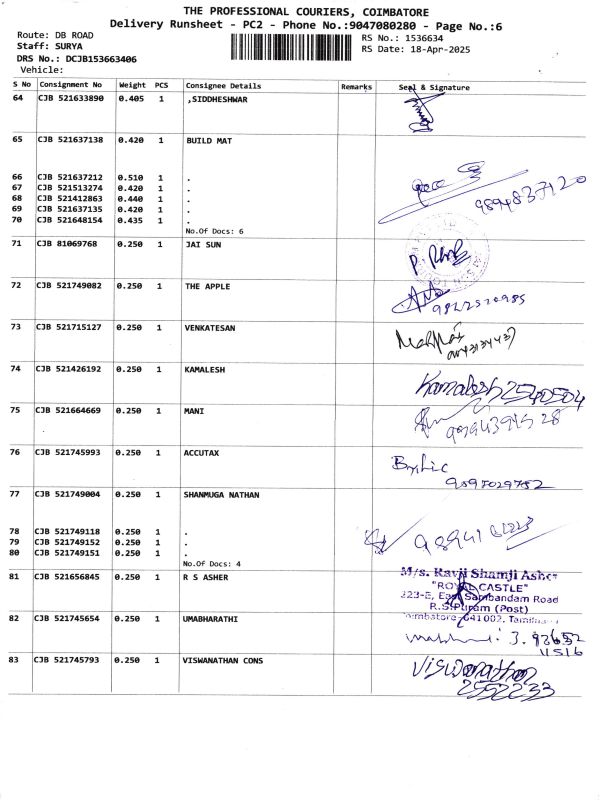 THE PROFESSIONAL COURIERS, COIMBATORE
Delivery Runsheet - PC2 - Phone No.:9047080280 - Page No.:6
Route: DB ROAD
Staff: SURYA
DRS No.: DCJB153663406
Vehicle:
RS No.: 1536634
RS Date: 18-Apr-2025
S No Consignment No Weight PCS Consignee Details Remarks Seal & Signature
64 CJB 521633890 0.405 1 ,SIDDHESHWAR
65 CJB 521637138 0.420 1 BUILD MAT
66 CJB 521637212 0.510 1 .
67 CJB 521513274 0.420 1 .
68 CJB 521412863 0.440 1 .
69 CJB 521637135 0.420 1 .
70 CJB 521648154 0.435 1 .
No.Of Docs: 6
9894837120
71 CJB 81069768 0.250 1 JAI SUN
72 CJB 521749082 0.250 1 THE APPLE
73 CJB 521715127 0.250 1 VENKATESAN
74 CJB 521426192 0.250 1 KAMALESH
Kamalesh 2540504
75 CJB 521664669 0.250 1 MANI
76 CJB 521745993 0.250 1 ACCUTAX
77 CJB 521749004 0.250 1 SHANMUGA NATHAN
78 CJB 521749118 0.250 1 .
79 CJB 521749152 0.250 1 .
80 CJB 521749151 0.250 1 .
No.Of Docs: 4
81 CJB 521656845 0.250 1 R S ASHER
M/s. Ravji Shamji Asher
"ROYAL CASTLE"
223-E, East Sambandam Road
R.S.Puram (Post)
82 CJB 521745654 0.250 1 UMABHARATHI
83 CJB 521745793 0.250 1 VISWANATHAN CONS
Viswanathan
2552233